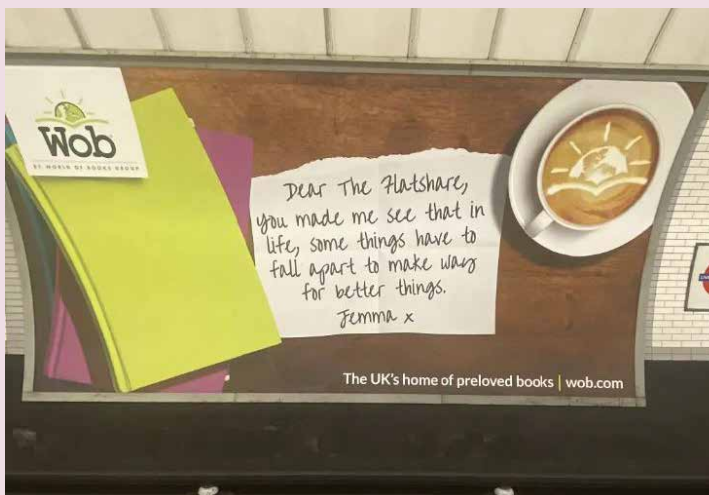 Wob
BY WORLD OF BOOKS GROUP
Dear The Flatshare,
you made me see that in
life, some things have to
fall apart to make way
for better things.
Jemma x
The UK's home of preloved books | wob.com